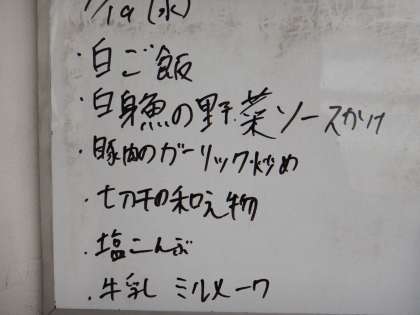 /19(水)
・白ご飯
・白身魚の野菜ソースかけ
・豚肉のガーリック炒め
・切干の和え物
・塩こんぶ
・牛乳 ミルメーク